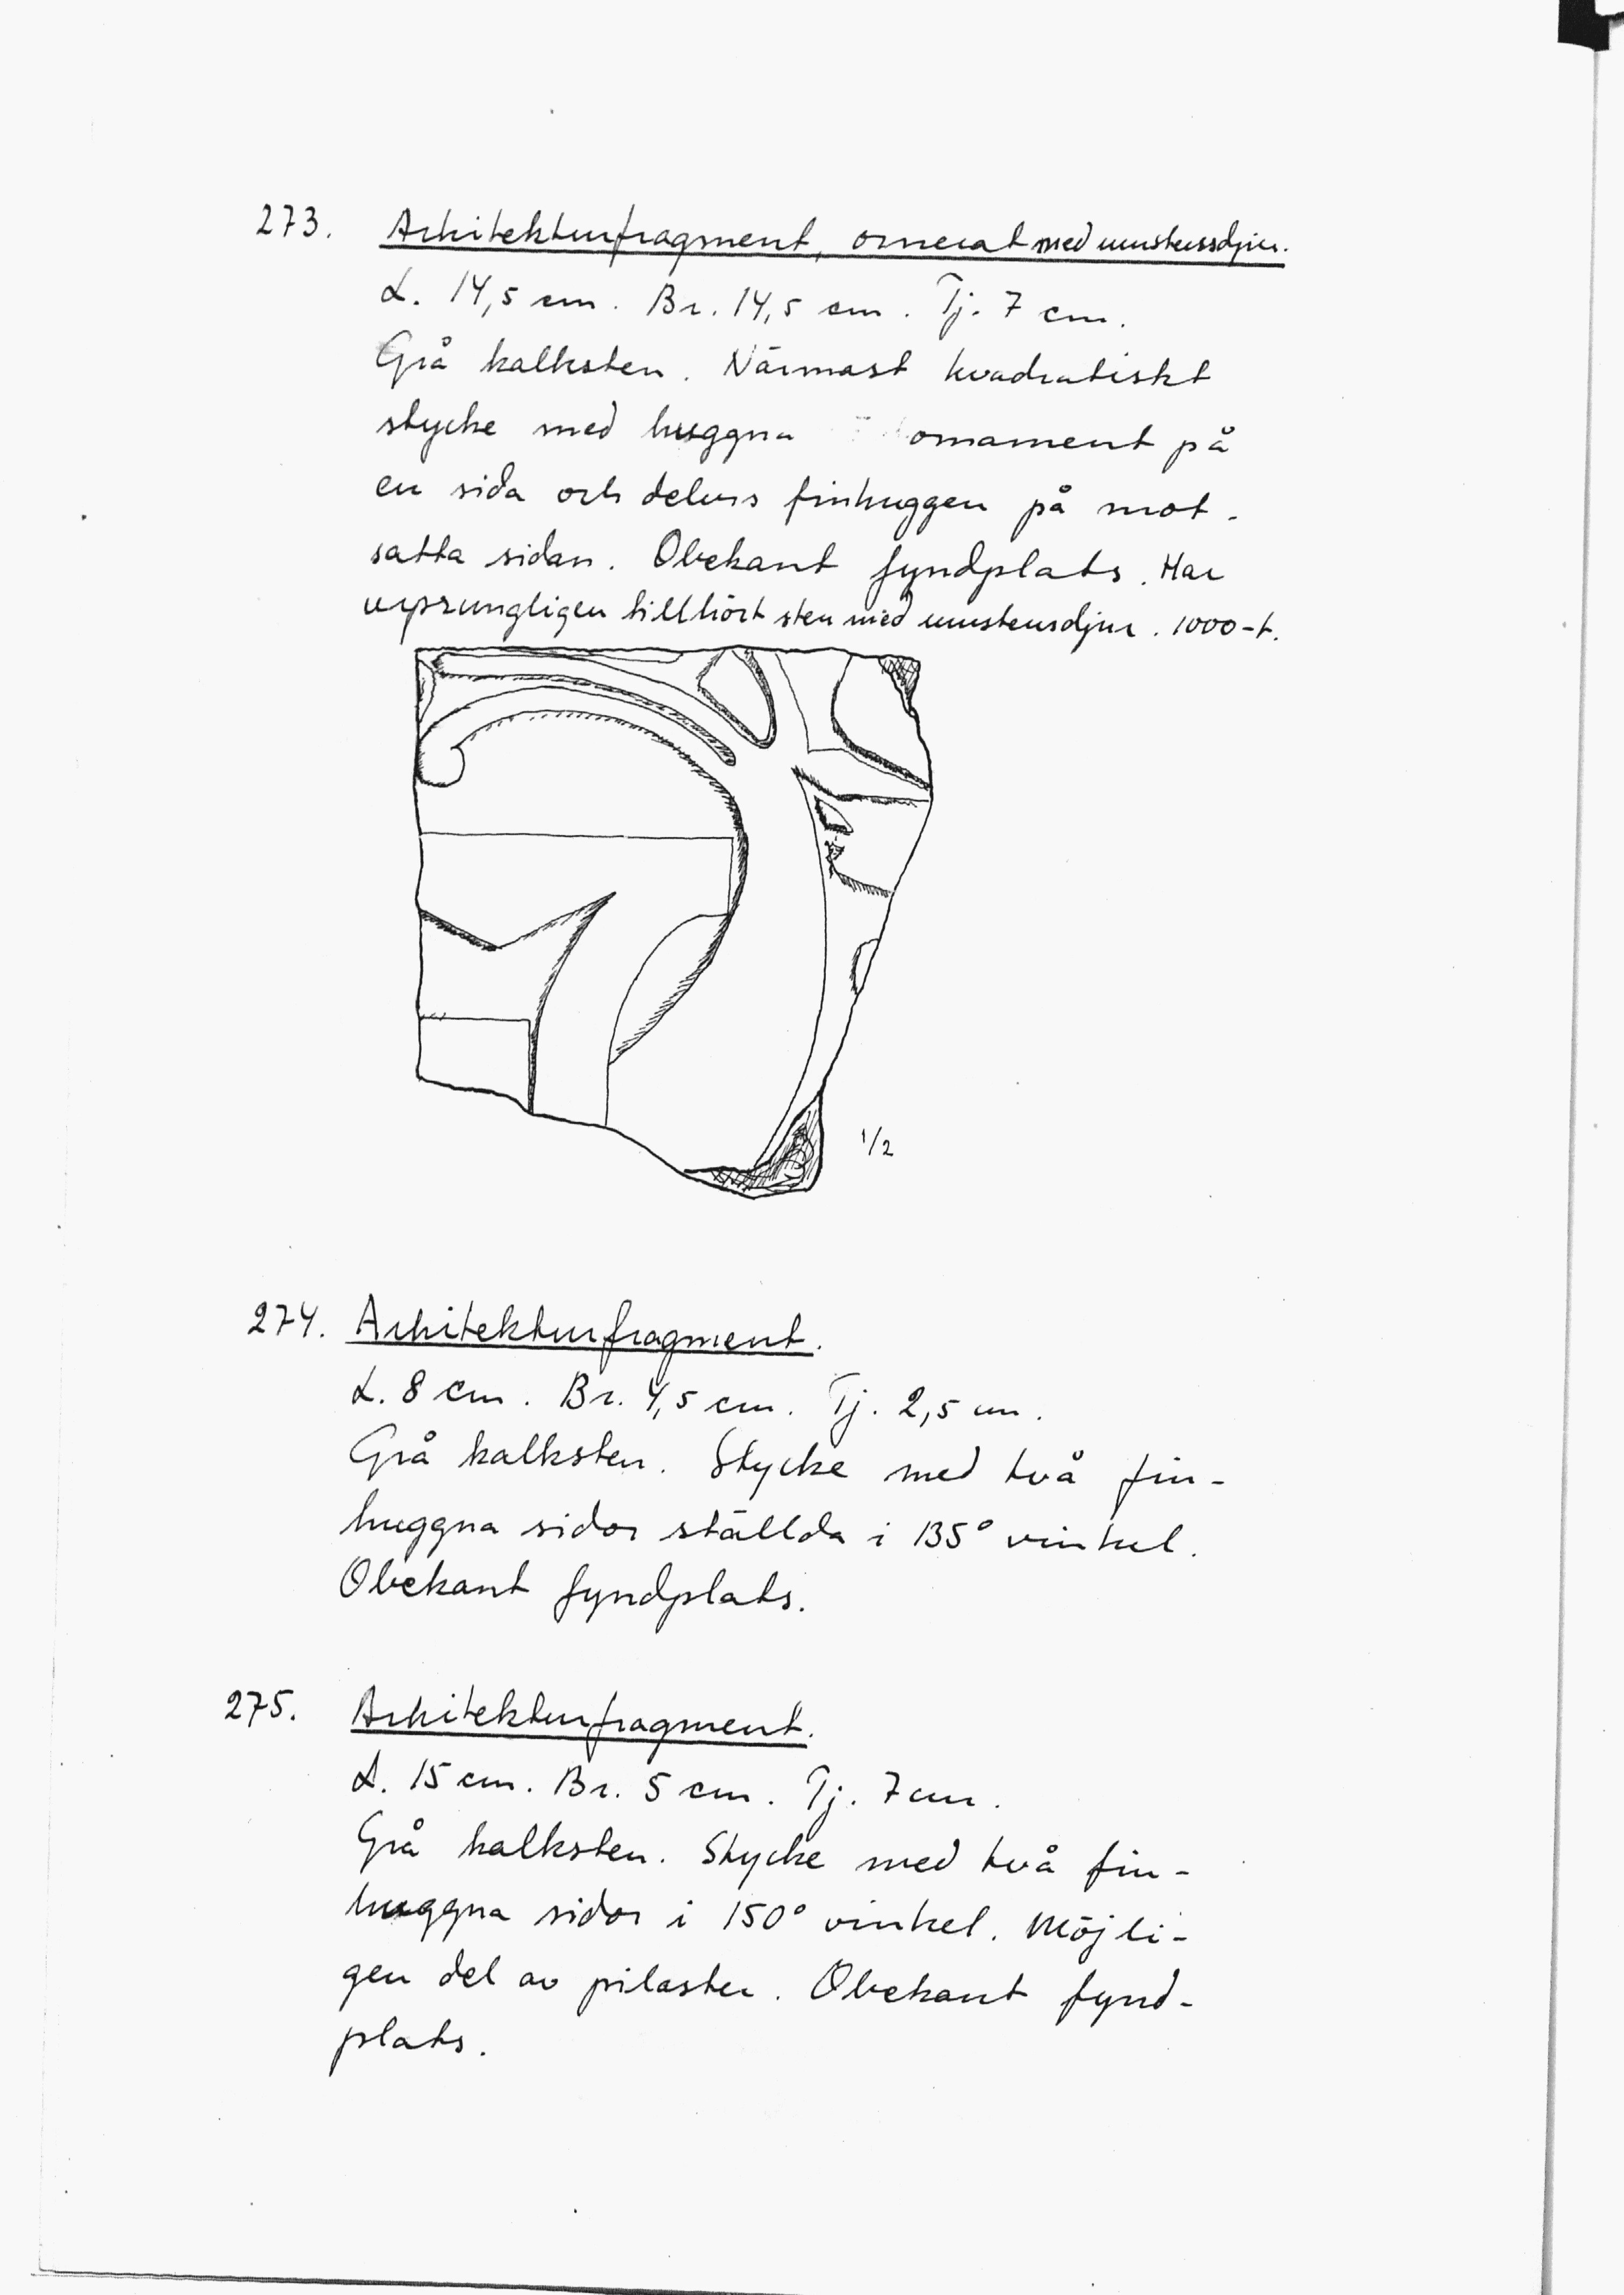 273. Arkitekturfragment, ornerat med runstensdjur.
L. 14,5 cm. Br. 14,5 cm. Tj. 7 cm.
Grå kalksten. Närmast kvadratiskt
stycke med huggna ornament på
en sida och delvis finhuggen på mot-
satta sidan. Obekant fyndplats. Har
ursprungligen tillhört sten med runstensdjur. 1000-t.
1/2
274. Arkitekturfragment.
L. 8 cm. Br. 4,5 cm. Tj. 2,5 cm.
Grå kalksten. Stycke med två fin-
huggna sidor ställda i 135° vinkel.
Obekant fyndplats.
275. Arkitekturfragment.
L. 15 cm. Br. 5 cm. Tj. 7 cm.
Grå kalksten. Stycke med två fin-
huggna sidor i 150° vinkel. Möjli-
gen del av pilaster. Obekant fynd-
plats.